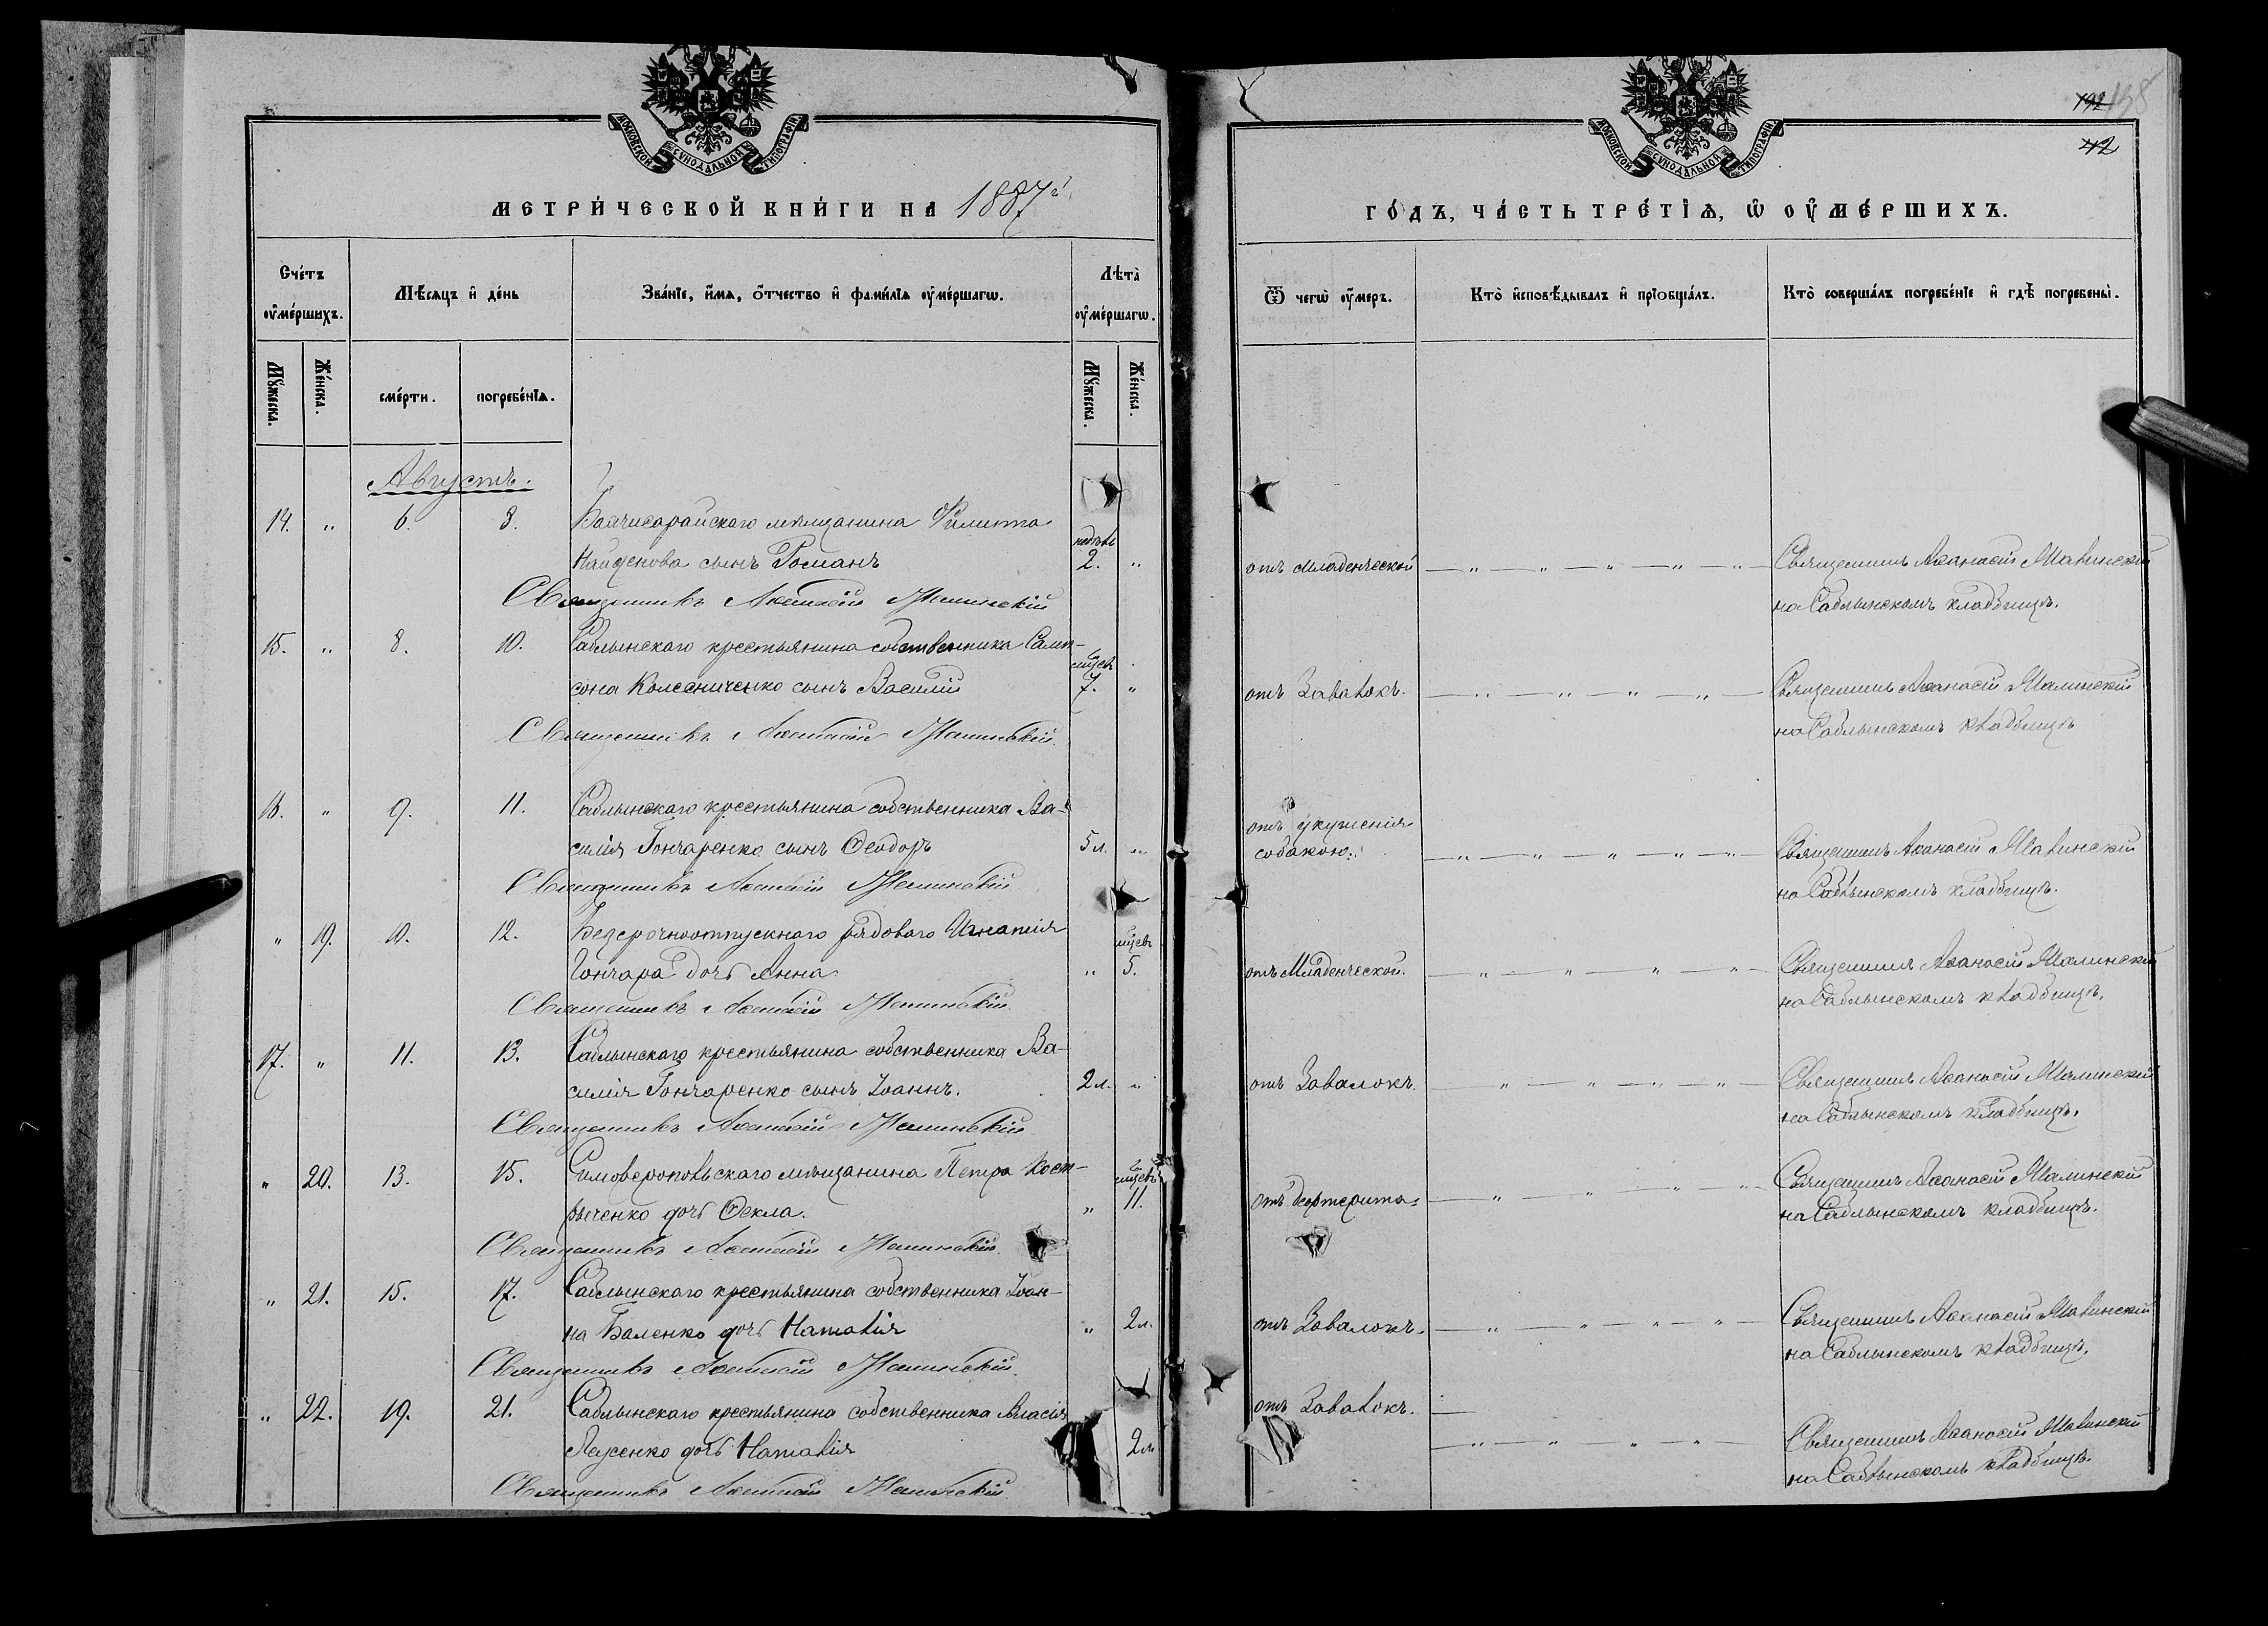 МОСКОВСКОЙ СѴНОДАЛЬНОЙ ТИПОГРАФІИ
МЕТРИ́ЧЕСКОЙ КНИ́ГИ НА 1887й
Сче́тъ оу҆ме́ршихъ.
Мѣ́сяцъ и҆ де́нь
Зва́нїе, и҆́мѧ, ѻ҆́тчество и҆ фами́лїѧ оу҆ме́ршагѡ.
Лѣта̀ оу҆ме́ршагѡ.
Мꙋ́жеска.
Же́нска.
сме́рти.
погребе́нїѧ.
Мꙋ́жеска.
Же́нска.
Августъ.
14. „ 6. 8. Бахчисарайскаго мѣщанина Филиппа
Найденова сынъ Романъ
недѣль
2. „
Священникъ Аѳанасій Малинскій
15. „ 8. 10. Саблынскаго крестьянина собственника Самп-
сона Колесниченко сынъ Василій
мѣсяцъ
7. „
Священникъ Аѳанасій Малинскій
16. „ 9. 11. Саблынскаго крестьянина собственника Ва-
силія Гончаренко сынъ Ѳеодоръ 5 л. „
Священникъ Аѳанасій Малинскій
„ 19. 10. 12. Безсрочноотпускнаго рядоваго Игнатія
Гончара дочь Анна.
мѣсяцъ
„ 5.
Священникъ Аѳанасій Малинскій
17. „ 11. 13. Саблынскаго крестьянина собственника Ва-
силія Гончаренко сынъ Іоаннъ. 2 л. „
Священникъ Аѳанасій Малинскій
„ 20. 13. 15. Симферопольскаго мѣщанина Петра Кост-
рыченко дочь Ѳекла.
мѣсяцъ
„ 11.
Священникъ Аѳанасій Малинскій
„ 21. 15. 17. Саблынскаго крестьянина собственника Іоан-
на Баленко дочь Наталія „ 2 л.
Священникъ Аѳанасій Малинскій
„ 22. 19. 21. Саблынскаго крестьянина собственника Власія
дочь Наталія 2 л.
Священникъ Аѳанасій Малинскій
192 138
42
МОСКОВСКОЙ СѴНОДАЛЬНОЙ ТИПОГРАФІИ
ГО́ДЪ, ЧА́СТЬ ТРЕ́ТЇѦ, Ѡ҆ ОУ҆МЕ́РШИХЪ.
Ѿ чегѡ̀ оу҆́меръ.
Кто̀ и҆сповѣ́дывалъ и҆ прїѡбща́лъ.
Кто̀ соверша́лъ погребе́нїе и҆ гдѣ̀ погребены̀.
отъ младенческой — „ — „ — „ — „ — „ — Священникъ Аѳанасій Малинскій
на Саблынскомъ кладбищѣ.
отъ Завалокъ. — „ — „ — „ — „ — Священникъ Аѳанасій Малинскій
на Саблынскомъ кладбищѣ
отъ укушенія
собакою. — „ — „ — „ — „ — „ — Священникъ Аѳанасій Малинскій
на Саблынскомъ кладбищѣ.
отъ Младенческой. — „ — „ — „ — „ — Священникъ Аѳанасій Малинскій
на Саблынскомъ кладбищѣ.
отъ Завалокъ. — „ — „ — „ — „ — Священникъ Аѳанасій Малинскій
на Саблынскомъ кладбищѣ.
отъ дифтерита. — „ — „ — „ — „ — Священникъ Аѳанасій Малинскій
на Саблынскомъ кладбищѣ.
отъ Завалокъ. — „ — „ — „ — „ — Священникъ Аѳанасій Малинскій
на Саблынскомъ кладбищѣ.
отъ Завалокъ.
— „ — „ — „ — „ — Священникъ Аѳанасій Малинскій
на Саблынскомъ кладбищѣ.